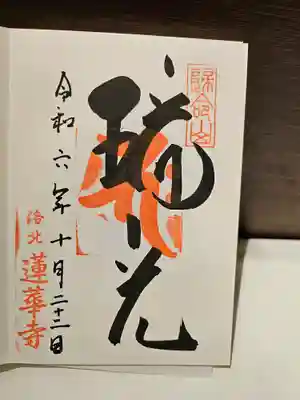 歸命山
瑞光
令和六年十月二十二日
洛北
蓮華寺